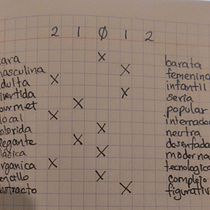 2 1 0 1 2
ara X barata
masculina X femenina
dulta X infantil
ivertida X seria
ourmet X popular
ocal X internacio
olorida X neutra
legante X desenfada
lásica X moderna
rgánica X tecnológic
encillo X complejo
bstracto X figurativ